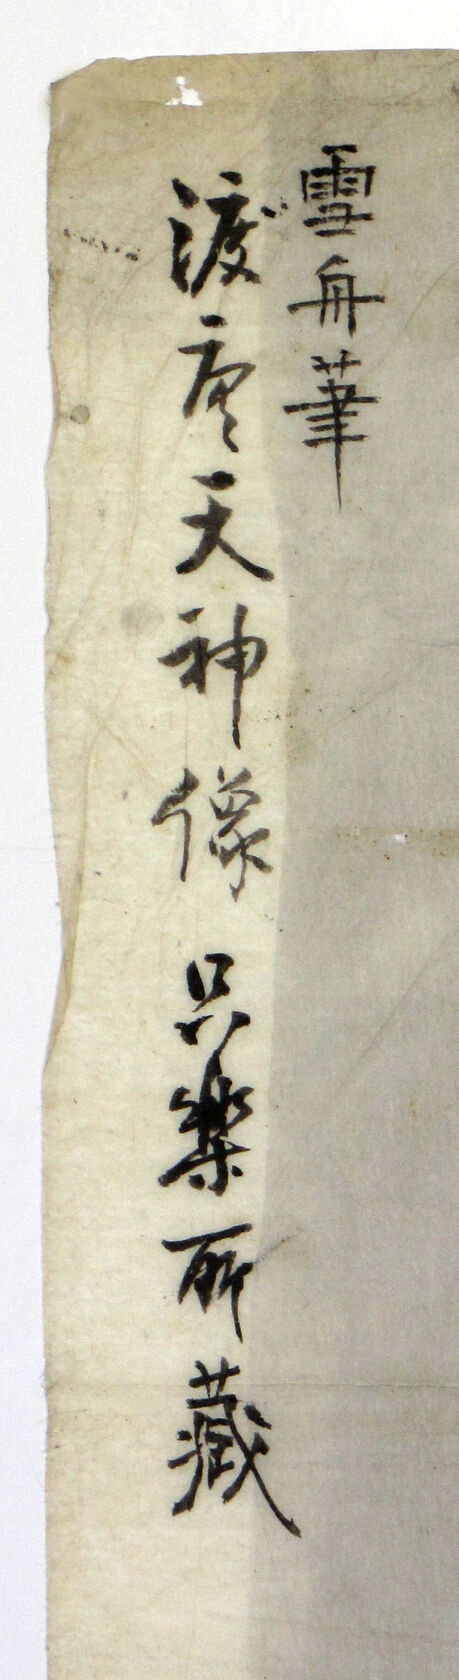 雪舟筆
渡唐天神像 只樂所藏